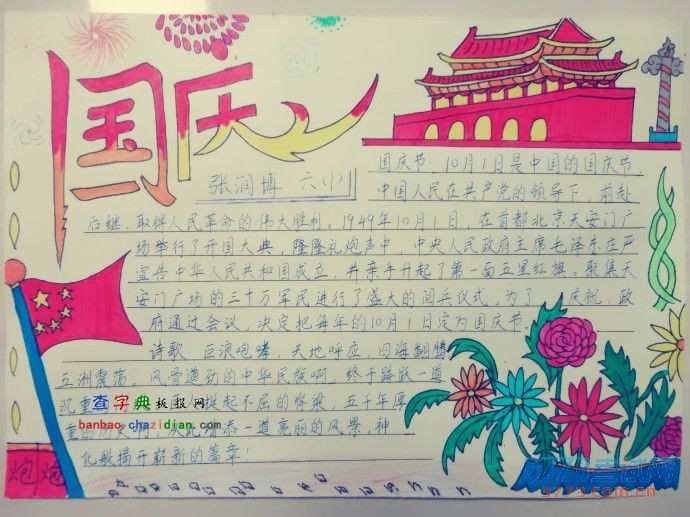 国庆
张润博 六(1)
国庆节:10月1日是中国的国庆节,
中国人民在共产党的领导下,前赴
后继,取得人民革命的伟大胜利。1949年10月1日,在首都北京天安门广
场举行了开国大典,隆隆礼炮声中,中央人民政府主席毛泽东庄严
宣告中华人民共和国成立,并亲手升起了第一面五星红旗。聚集天
安门广场的三十万军民进行了盛大的阅兵仪式,为了 庆祝,政
府通过会议,决定把每年的10月1日定为国庆节。
诗歌 巨浪咆哮,天地呼应,四海翻腾
五洲震荡。风骨遒劲的中华民族啊,终于
拱起不屈的脊梁,五千年厚
重的 添一道亮丽的风景,神
化歌揭开崭新的篇章!
查字典板报网
banbao.chazidian.com
炮 炮